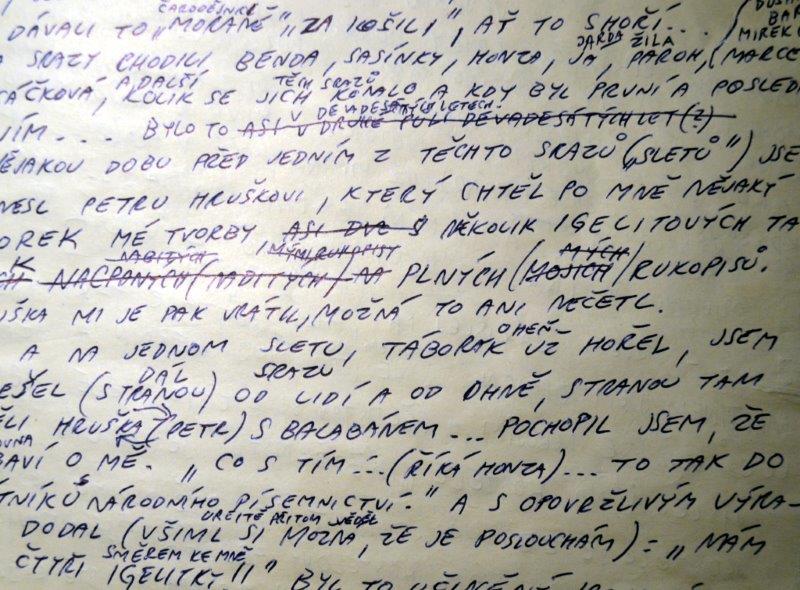 ČARODĚJNICI
DÁVALI TO „MORANĚ" „ZA KOŠILI", AŤ TO SHOŘÍ...
BAR
MIREK
JARDA ŽILA
SRAZY CHODILI, BENDA, SASÍNKY, HONZA, JÁ, PAROH, (MARCE
A DALŠÍ TĚCH SRAZŮ
ÁČKOVÁ, KOLIK SE JICH KONALO A KDY BYL PRVNÍ A POSLED
V DEVADESÁTÝCH LETECH.
BYLO TO ASI V DRUHÉ PŮLI DEVADESÁTÝCH LET (?)
ĚJAKOU DOBU PŘED JEDNÍM Z TĚCHTO SRAZŮ („SLETŮ") JSE
NESL PETRU HRUŠKOVI, KTERÝ CHTĚL PO MNĚ NĚJAKÝ
OREK MÉ TVORBY ASI DVĚ NĚKOLIK IGELITOVÝCH TA
NABITÝCH MÝMI RUKOPISY MÝCH
NACPANÝCH (NABITÝCH) NA PLNÝCH (MOJICH) RUKOPISŮ.
UŠKA MI JE PAK VRÁTIL, MOŽNÁ TO ANI NEČETL.
OHEŇ
A NA JEDNOM SLETU, TÁBORÁK UŽ HOŘEL, JSEM
DÁL SRAZU
EŠEL (STRANOU) OD LIDÍ A OD OHNĚ, STRANOU TAM
ĚLI HRUŠKA (PETR) S BALABÁNEM... POCHOPIL JSEM, ŽE
OVNA
BAVÍ O MĚ. „CO S TÍM... (ŘÍKÁ HONZA)... TO TAK DO
ÁTNÍKŮ NÁRODNÍHO PÍSEMNICTVÍ." A S OPOVRŽLIVÝM VÝRA-
URČITĚ PŘITOM VĚDĚL
DODAL (VŠIML SI MOŽNÁ, ŽE JE POSLOUCHÁM): „NÁM
SMĚREM KE MNĚ
ČTYŘI IGELITKY!!"
BYL TO